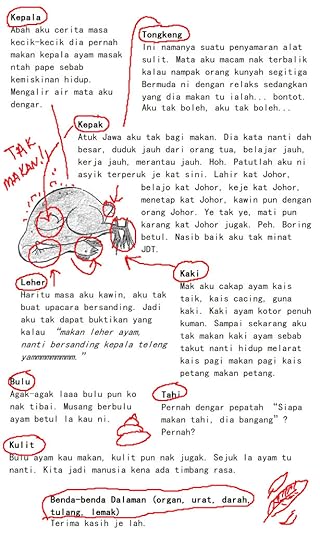 Kepala
Abah aku cerita masa
kecik-kecik dia pernah
makan kepala ayam masak
ntah pape sebab
kemiskinan hidup.
Mengalir air mata aku
dengar.
Tongkeng
Ini namanya suatu penyamaran alat
sulit. Mata aku macam nak terbalik
kalau nampak orang kunyah segitiga
Bermuda ni dengan relaks sedangkan
yang dia makan tu ialah... bontot.
Aku tak boleh, aku tak boleh...
Kepak
Atuk Jawa aku tak bagi makan. Dia kata nanti dah
besar, duduk jauh dari orang tua, belajar jauh,
kerja jauh, merantau jauh. Hoh. Patutlah aku ni
asyik terperuk je kat sini. Lahir kat Johor,
belajo kat Johor, keje kat Johor,
menetap kat Johor, kawin pun dengan
orang Johor. Ye tak ye, mati pun
karang kat Johor jugak. Peh. Boring
betul. Nasib baik aku tak minat
JDT.
TAK
MAKAN!!
Leher
Haritu masa aku kawin, aku tak
buat upacara bersanding. Jadi
aku tak dapat buktikan yang
kalau “makan leher ayam,
nanti bersanding kepala teleng
yammmmmmmmm.”
Kaki
Mak aku cakap ayam kais
taik, kais cacing, guna
kaki. Kaki ayam kotor penuh
kuman. Sampai sekarang aku
tak makan kaki ayam sebab
takut nanti hidup melarat
kais pagi makan pagi kais
petang makan petang.
Bulu
Agak-agak laaa bulu pun ko
nak tibai. Musang berbulu
ayam betul la kau ni.
Tahi
Pernah dengar pepatah “Siapa
makan tahi, dia bangang”?
Pernah?
Kulit
Bulu ayam kau makan, kulit pun nak jugak. Sejuk la ayam tu
nanti. Kita jadi manusia kena ada timbang rasa.
Benda-benda Dalaman (organ, urat, darah,
tulang, lemak)
Terima kasih je lah.